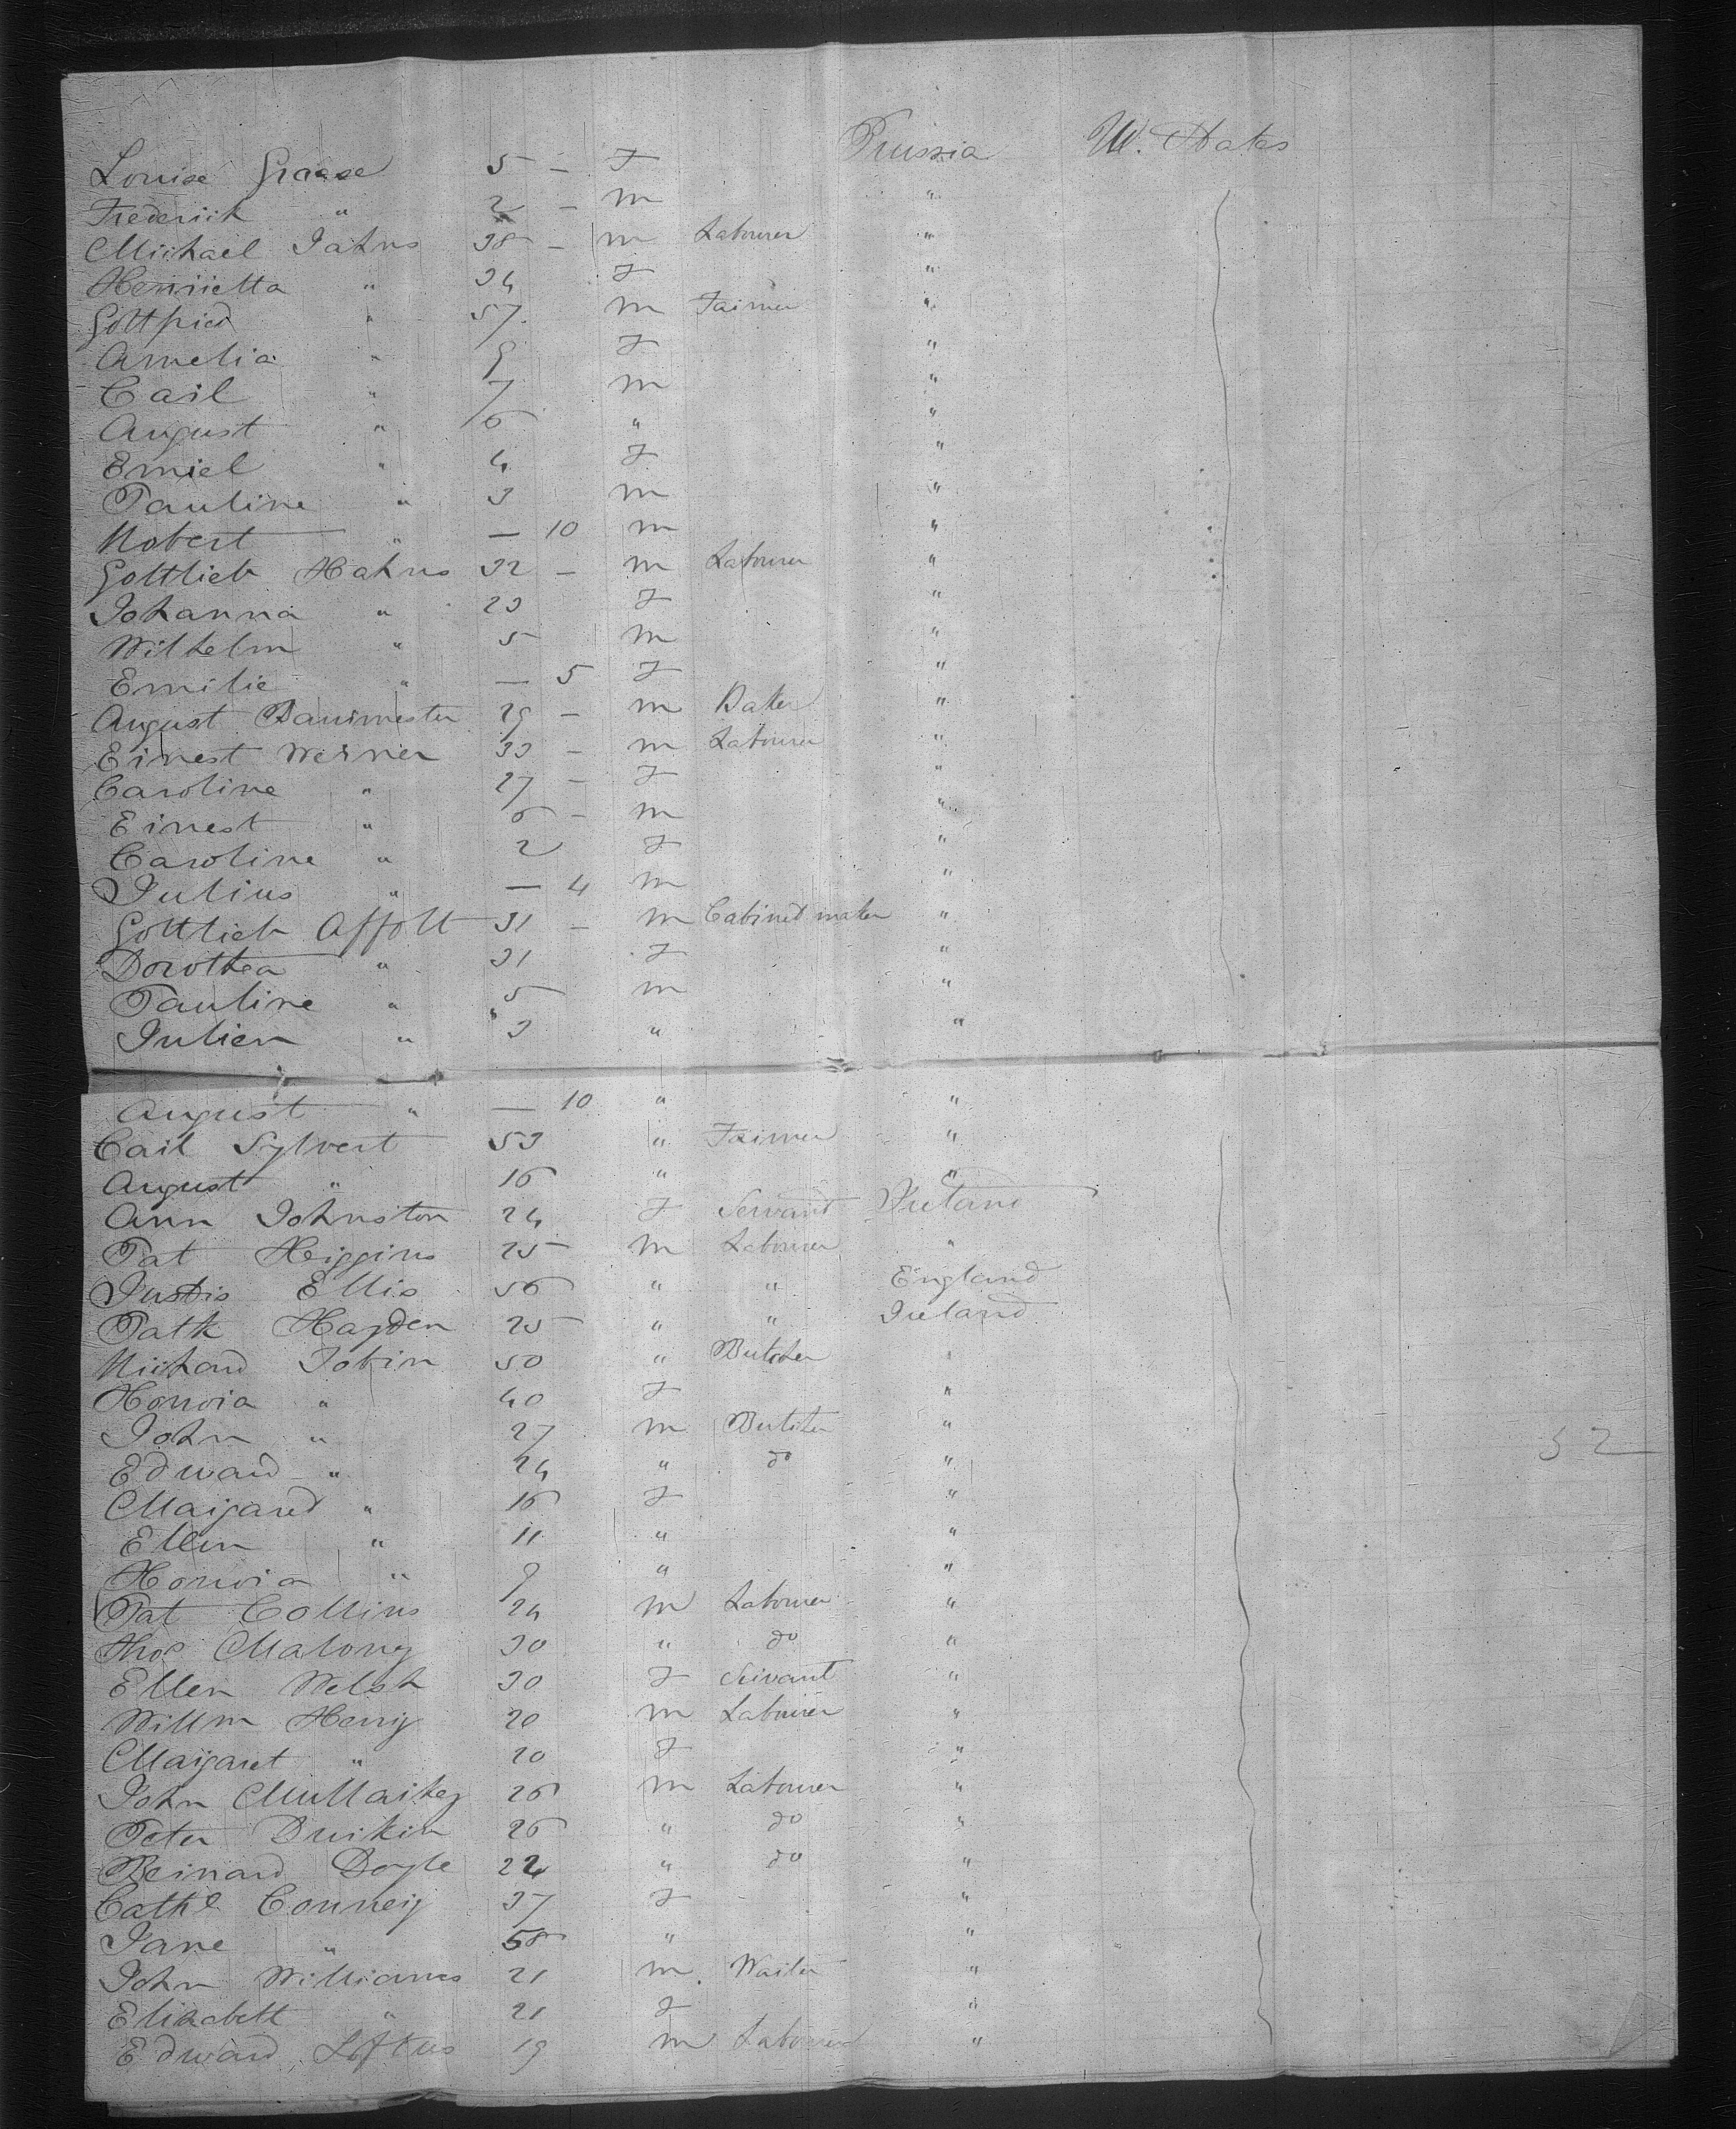 Louise Graase 5 – F Prussia U. States
Frederick " 2 – m "
Michael Jahns 38 – m Labourer "
Henrietta " 34 F "
Gottfried " 57 m Farmer "
Amelia " 9 F "
Carl " 7 m "
August " 6 " "
Emiel " 4 F "
Pauline " 3 m "
Robert " — 10 m "
Gottlieb Hahns 32 – m Labourer "
Johanna " 23 F "
Wilhelm " 5 m "
Emilie " — 5 F "
August Baumester 29 – m Baker "
Ernest Werner 33 – m Labourer "
Caroline " 27 – F "
Ernest " 6 – m "
Caroline " 2 F "
Julius " — 4 m "
Gottlieb Affolt 31 – m Cabinet maker "
Dorothea " 31 F "
Pauline " 5 m "
Julien " 3 " "
August " — 10 " "
Carl Sylvert 53 " Farmer "
August " 16 " "
Ann Johnston 24 F Servant Ireland
Pat Higgins 25 m Labourer "
Justis Ellis 56 " " England
Patk Hayden 25 " " Ireland
Richard Tobin 50 " Butcher "
Honora " 40 F "
John " 27 m Butcher "
Edward " 24 " do "
52
Margaret " 16 F "
Ellen " 11 " "
Honora " 9 " "
Pat Collins 24 m Labourer "
Thos Malony 30 " do "
Ellen Welsh 30 F Servant "
Willm Henry 20 m Labourer "
Margaret " 20 F "
John Mullarkey 26 m Labourer "
Peter Durkin 26 " do "
Bernard Doyle 22 " do "
Cathe Conney 37 F "
Jane " 58 " "
John Williams 21 m Waiter "
Elizabeth " 21 F "
Edward Loftus 19 m Labourer "